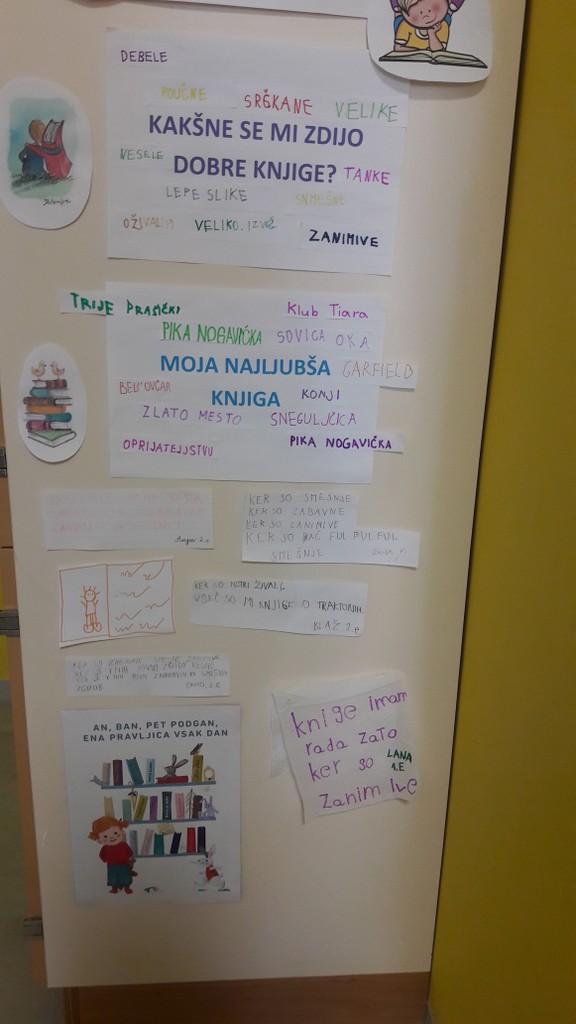 DEBELE
POUČNE SRČKANE VELIKE
KAKŠNE SE MI ZDIJO
VESELE DOBRE KNJIGE? TANKE
LEPE SLIKE SNMEŠNE
VELIKO. IZVEŠ ZANIMIVE
TRIJE PRAŠIČKI Klub Tiara
PIKA NOGAVIČKA SOVICA OKA
MOJA NAJLJUBŠA GARFIELD
BELI OVČAR KNJIGA KONJI
ZLATO MESTO SNEGULJČICA
OPRIJATEJJSTVU PIKA NOGAVIČKA
KER SO SMEŠNJE
KER SO ZABAVNE
KER SO ZANIMIVE
KER SO PAČ FUL FUL FUL
SMEŠNJE
KER SO NOTRI ŽIVALI.
VŠEČ SO MI KNJIGE O TRAKTORJIH
BLAŽ 2.e
AN, BAN, PET PODGAN,
ENA PRAVLJICA VSAK DAN
knige imam
rada zato
ker so LANA
1.E
zanimive